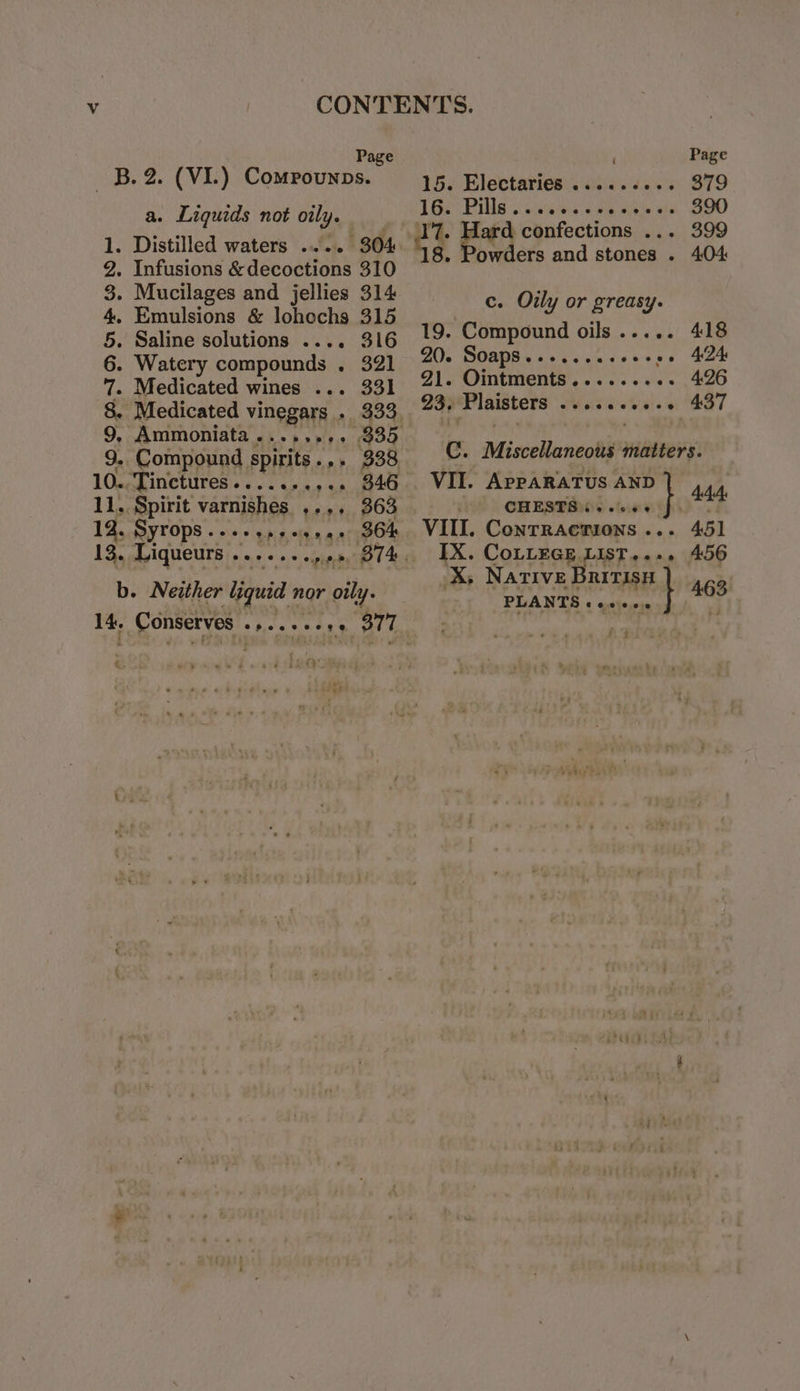 v CONTENTS.
Page
B. 2. (VI.) COMPOUNDS.
a. Liquids not oily.
1. Distilled waters ..... 304
2. Infusions & decoctions 310
3. Mucilages and jellies 314
4. Emulsions & lohochs 315
5. Saline solutions .... 316
6. Watery compounds . 321
7. Medicated wines ... 331
8. Medicated vinegars . 333
9. Ammoniata ........ 335
9. Compound spirits ... 338
10. Tinctures .......... 346
11. Spirit varnishes .... 363
12. Syrops ............ 364
13. Liqueurs .......... 374
b. Neither liquid nor oily.
14. Conserves ......... 377
Page
15. Electaries ......... 379
16. Pills .............. 390
17. Hard confections ... 399
18. Powders and stones . 404
c. Oily or greasy.
19. Compound oils ..... 418
20. Soaps ............. 424
21. Ointments ......... 426
23. Plaisters .......... 437
C. Miscellaneous matters.
VII. APPARATUS AND CHESTS ...... } 444
VIII. CONTRACTIONS ... 451
IX. COLLEGE LIST .... 456
X. NATIVE BRITISH PLANTS ...... } 463